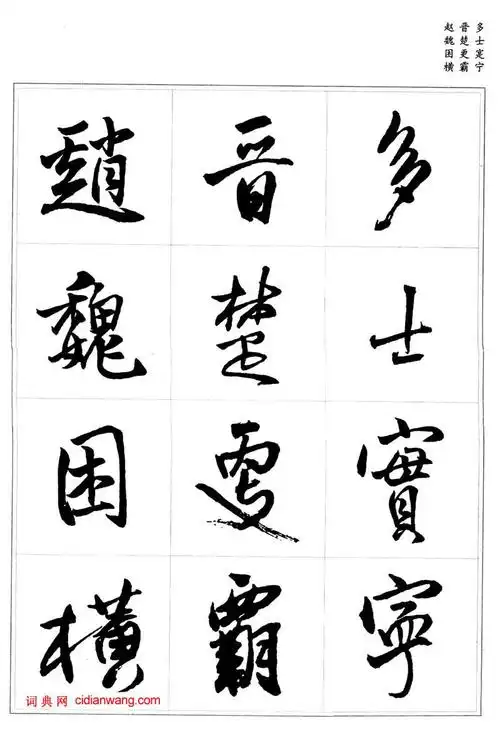 多士寔宁
晋楚更霸
赵魏困横
多士實寧
晋楚更霸
趙魏困橫
词典网 cidianwang.com